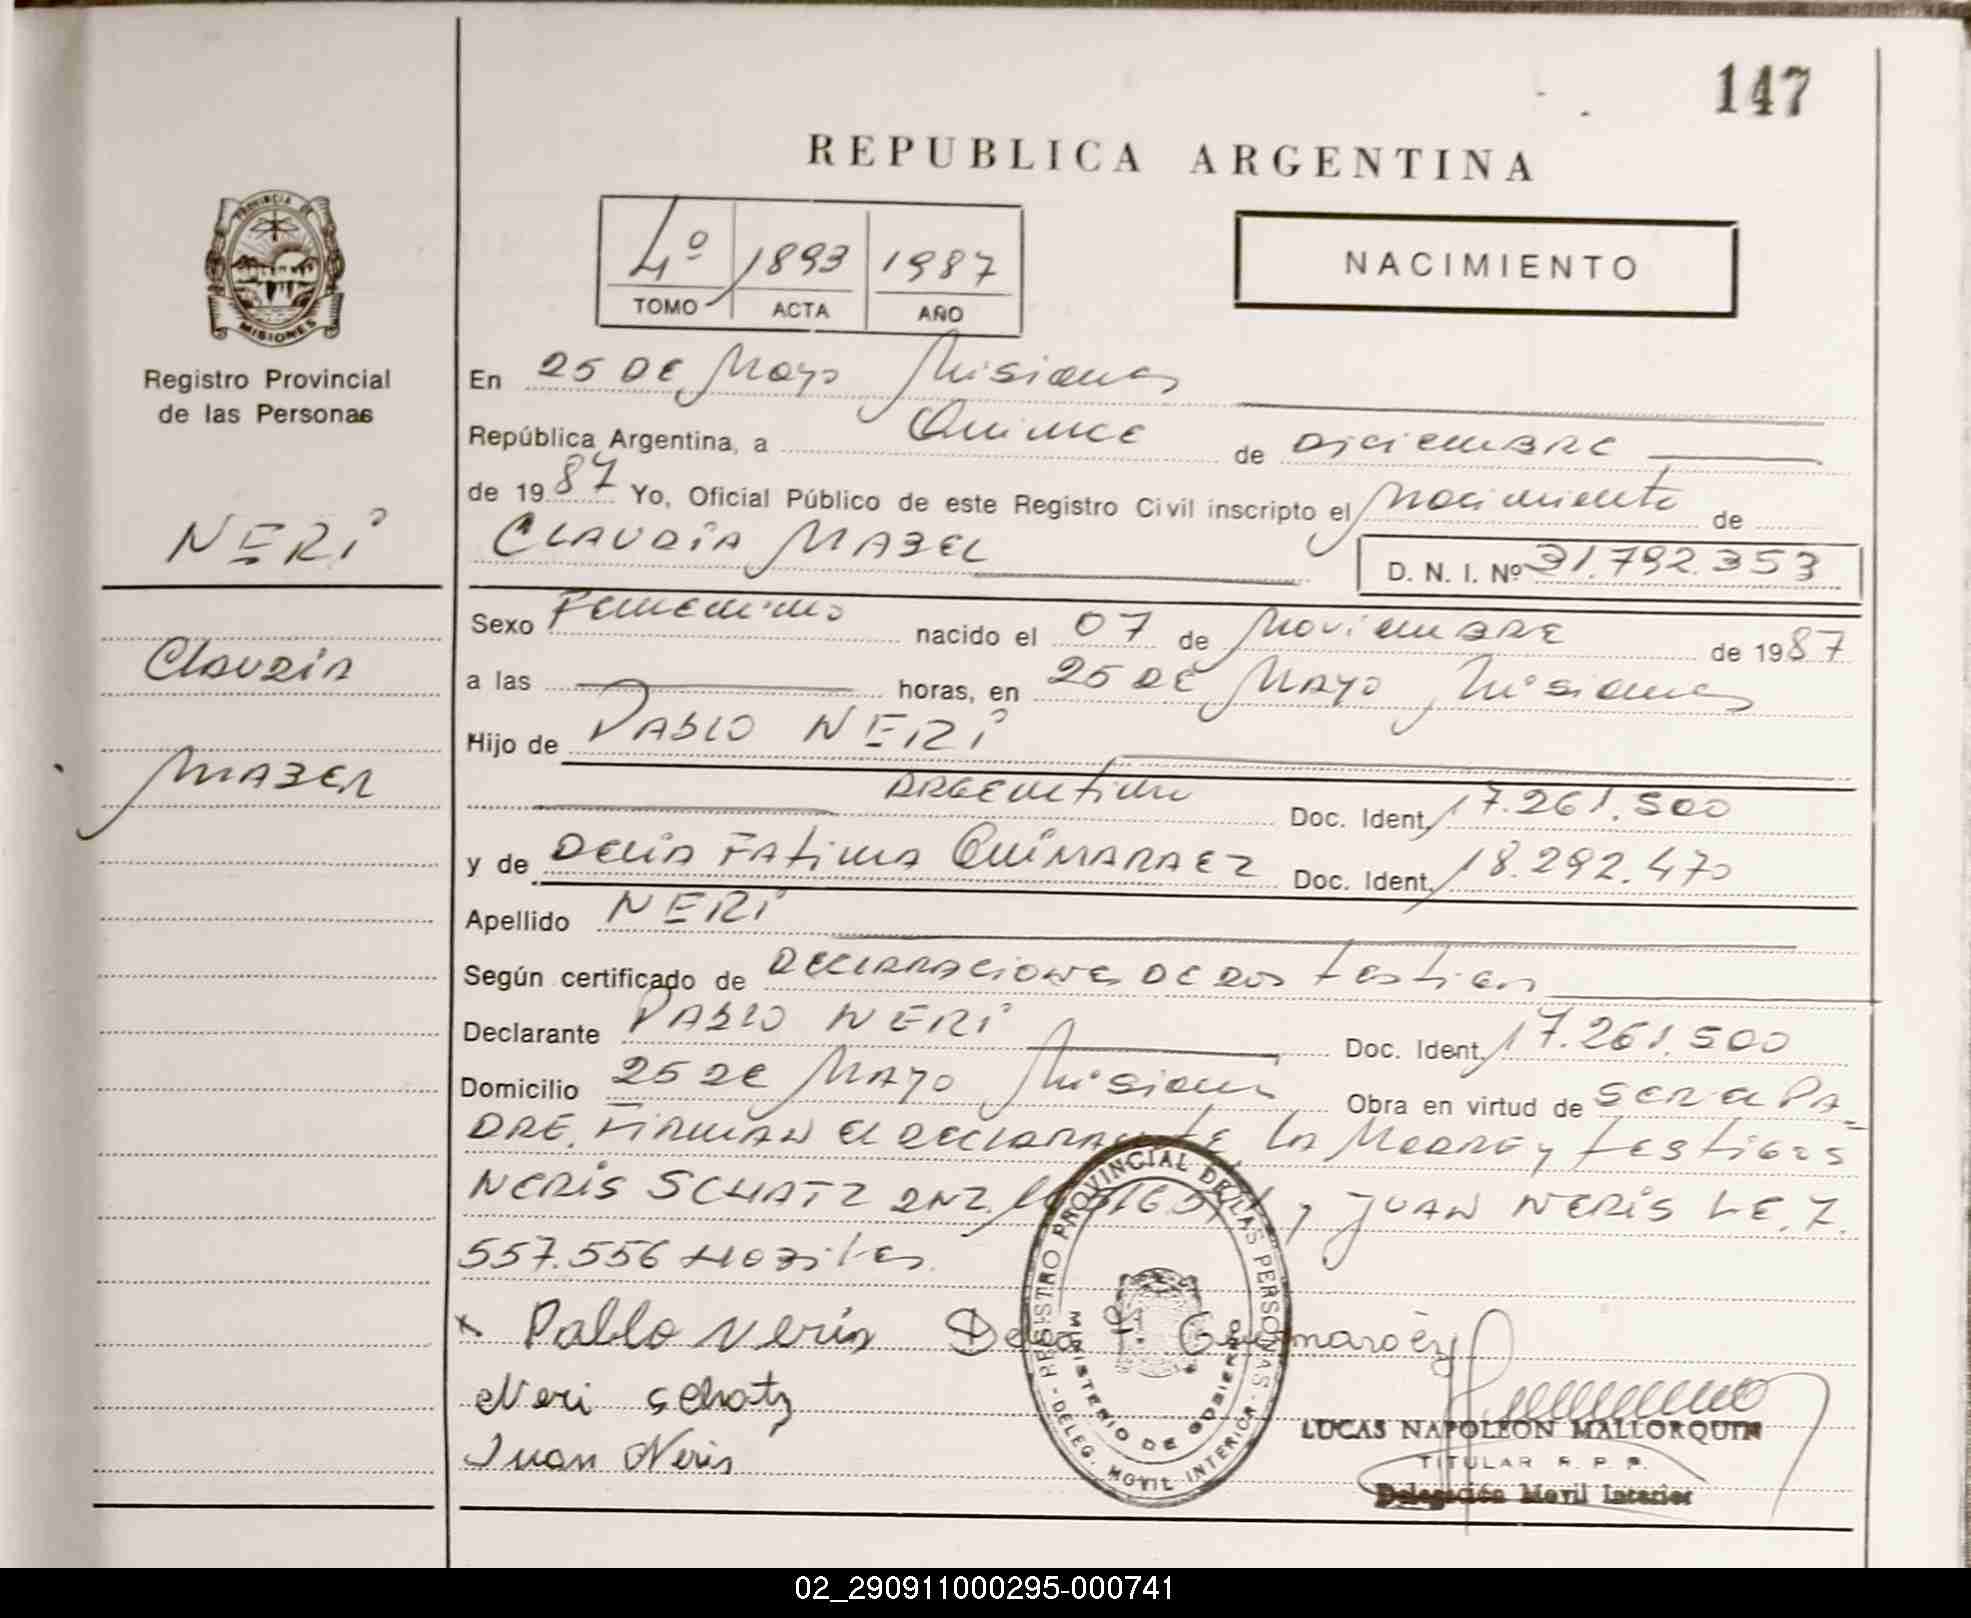 147
REPUBLICA ARGENTINA
4º 1893 1987
TOMO ACTA AÑO
NACIMIENTO
PROVINCIA DE
MISIONES
Registro Provincial
de las Personas
NERI
Claudia
MABEL
En 25 DE Mayo Misiones
República Argentina, a Quince de Diciembre
de 1987 Yo, Oficial Público de este Registro Civil inscripto el Nacimiento de
CLAUDIA MABEL D. N. I. Nº 31.792.353
Sexo Femenino nacido el 07 de Noviembre de 1987
a las horas, en 25 DE MAYO Misiones
Hijo de PABLO NERI
Argentino Doc. Ident. 17.261.500
y de Delia Fatima Quimaraez Doc. Ident. 18.292.470
Apellido NERI
Según certificado de Declaraciones de dos testigos
Declarante PABLO NERI Doc. Ident. 17.261.500
Domicilio 25 de Mayo Misiones Obra en virtud de ser el PA-
DRE, Firman el declarante, la Madre y testigos
NERIS SCHATZ DNI. y JUAN NERIS L.E. 7.
557.556 Hábiles.
x Pablo Neris Delia F Guimaraéz
Neri Schatz
Juan Neris
REGISTRO PROVINCIAL DE LAS PERSONAS
MINISTERIO DE GOBIERNO
DELEG. MOVIL INTERIOR
LUCAS NAPOLEON MALLORQUIN
TITULAR R. P. P.
Delegación Movil Interior
02_290911000295-000741